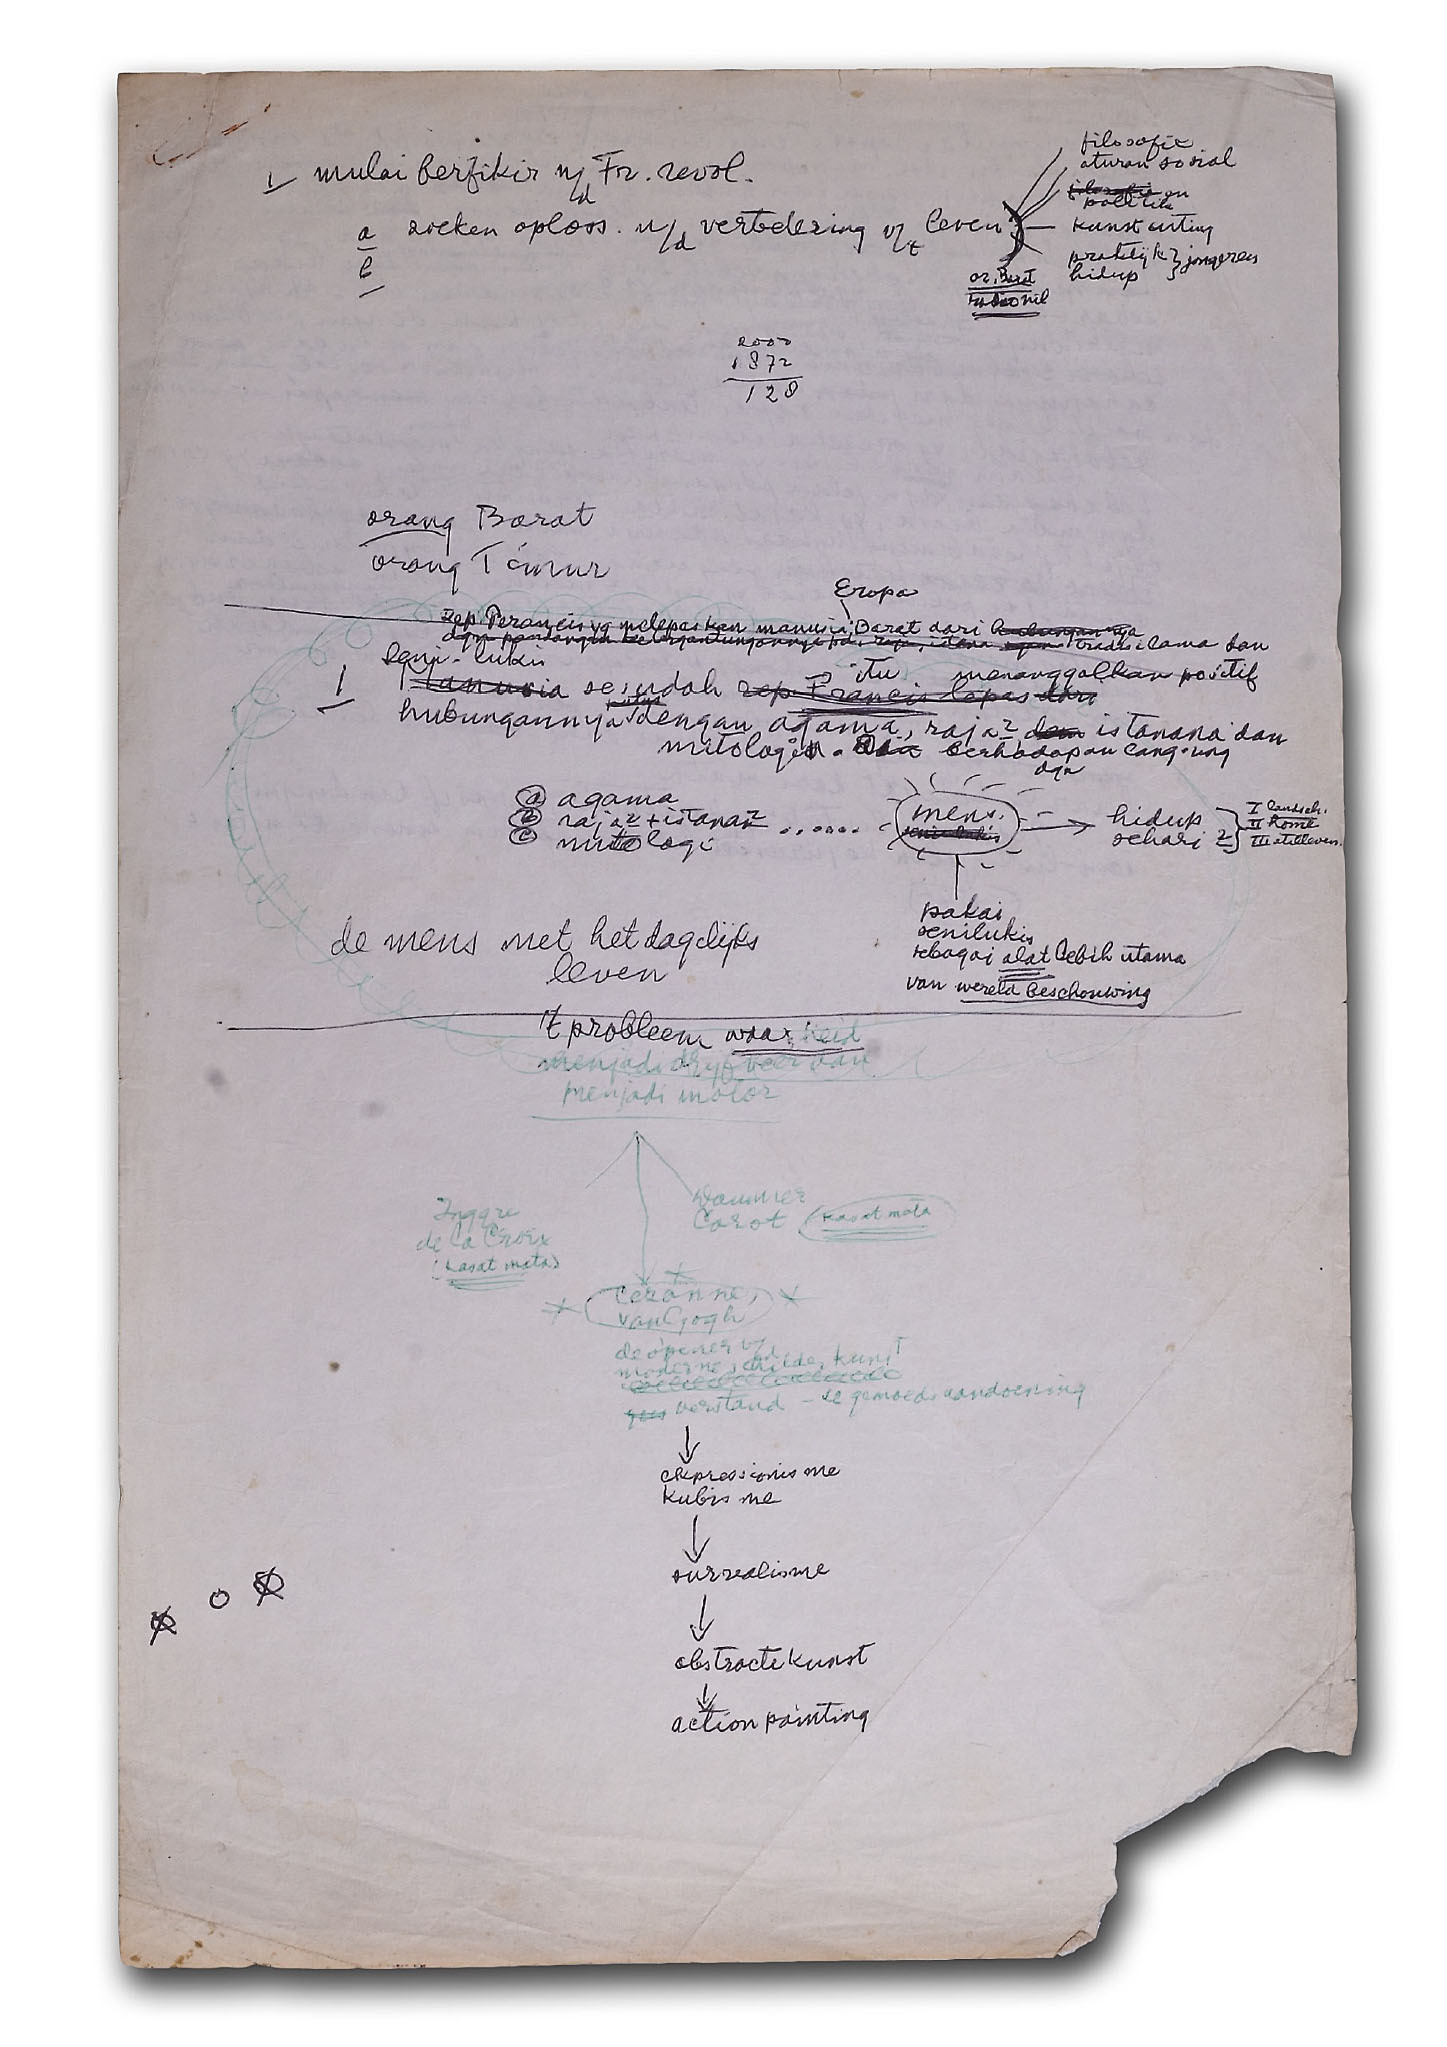 1 mulai berfikir v/d Fr. revol.
a zoeken oploss. v/d verbetering v/t leven
b
filosofie
aturan sosial
filosofie en
politik
kunst uiting
praktijk } jongeren
hidup }
or. Barat
rasionil
2000
1872
128
orang Barat
orang Timur
Eropa
rep. Perancis yg melepaskan manusia Barat dari hubungannya
tradisi lama dan
seni-lukis
1 manusia sesudah rep Francis lepas dari itu menanggalkan positif
hubungannya dengan agama, raja2 dan istanana dan
mitologi. berhadapan langsung
dgn
a agama
b raja2 + istana2 ...... mens. seni lukis → hidup sehari2 } I landsch.
c mitologi
II home
III stilleven.
pakai
senilukis
sebagai alat lebih utama
van wereld beschouwing
de mens met het dagelijks
leven
't probleem waarheid
menjadi drijfveer dan
menjadi motor
Inggre
de La Croix
(kasat mata)
Daumier
Corot (kasat mata)
Cezanne,
van Gogh
de opener v/d
moderne schilderkunst
verstand – de gemoedsaandoening
↓
ekpressionisme
kubisme
↓
surrealisme
↓
abstractekunst
↓
action painting